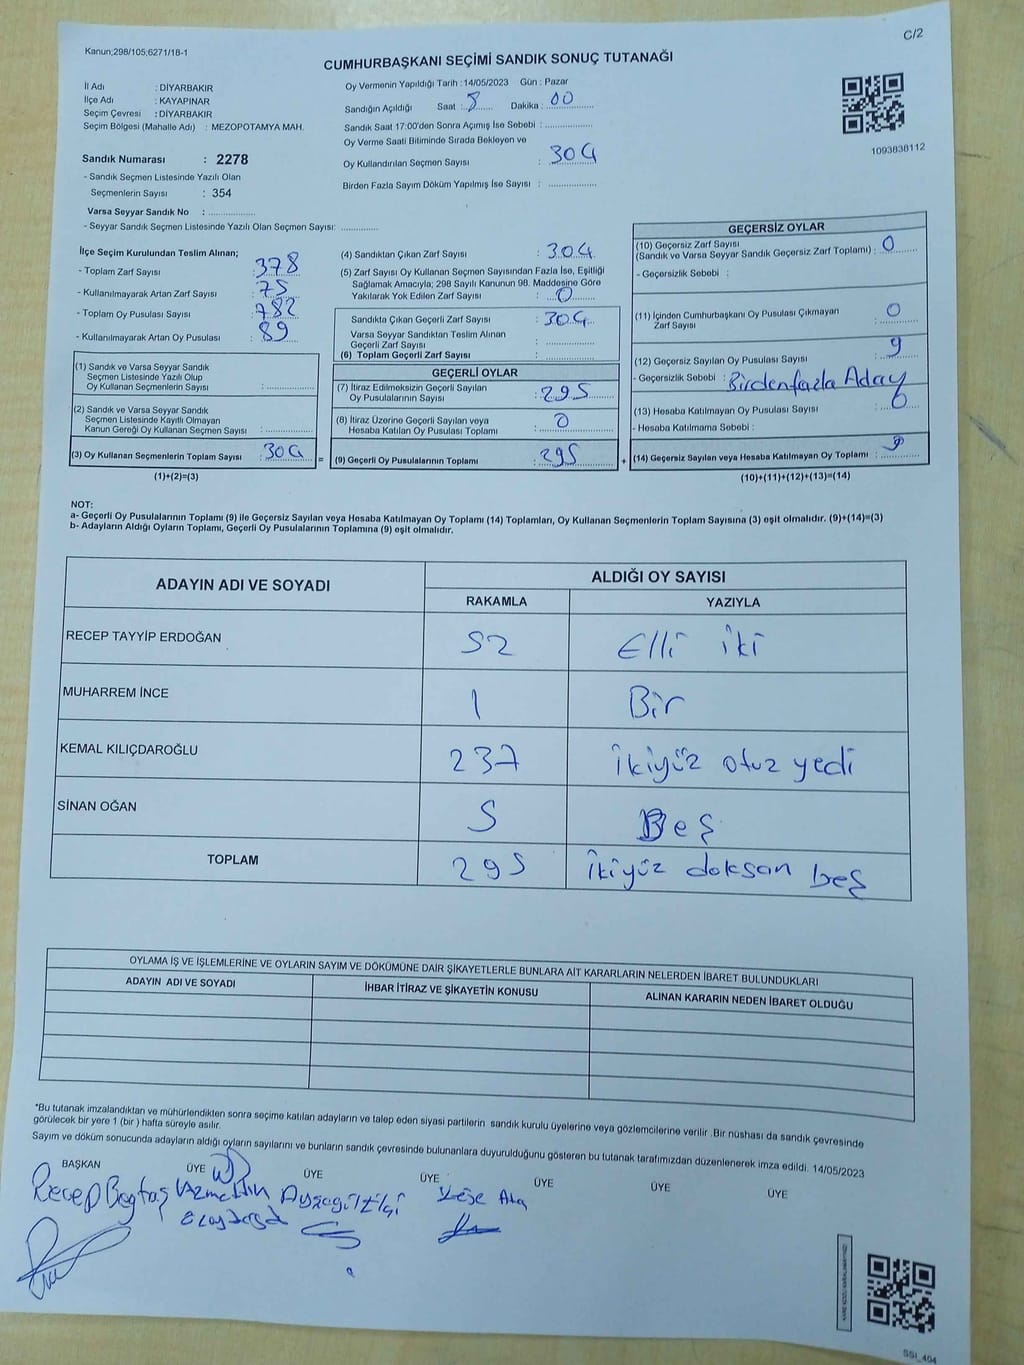 Kanun;298/105;6271/18-1
C/2
CUMHURBAŞKANI SEÇİMİ SANDIK SONUÇ TUTANAĞI
İl Adı : DİYARBAKIR
İlçe Adı : KAYAPINAR
Seçim Çevresi : DİYARBAKIR
Seçim Bölgesi (Mahalle Adı) : MEZOPOTAMYA MAH.
Sandık Numarası : 2278
- Sandık Seçmen Listesinde Yazılı Olan
Seçmenlerin Sayısı : 354
Varsa Seyyar Sandık No : ...............
- Seyyar Sandık Seçmen Listesinde Yazılı Olan Seçmen Sayısı: ............
Oy Vermenin Yapıldığı Tarih : 14/05/2023 Gün : Pazar
Sandığın Açıldığı Saat : 8 Dakika : 00
Sandık Saat 17:00'den Sonra Açımış İse Sebebi : ...............
Oy Verme Saati Bitiminde Sırada Bekleyen ve
Oy Kullandırılan Seçmen Sayısı : 304
Birden Fazla Sayım Döküm Yapılmış İse Sayısı : ...............
1093838112
İlçe Seçim Kurulundan Teslim Alınan;
- Toplam Zarf Sayısı : 378
- Kullanılmayarak Artan Zarf Sayısı : 75
- Toplam Oy Pusulası Sayısı : 782
- Kullanılmayarak Artan Oy Pusulası : 89
(1) Sandık ve Varsa Seyyar Sandık
Seçmen Listesinde Yazılı Olup
Oy Kullanan Seçmenlerin Sayısı : ...............
(2) Sandık ve Varsa Seyyar Sandık
Seçmen Listesinde Kayıtlı Olmayan
Kanun Gereği Oy Kullanan Seçmen Sayısı : ...............
(3) Oy Kullanan Seçmenlerin Toplam Sayısı : 304 =
(1)+(2)=(3)
(4) Sandıktan Çıkan Zarf Sayısı : 304
(5) Zarf Sayısı Oy Kullanan Seçmen Sayısından Fazla İse, Eşitliği
Sağlamak Amacıyla; 298 Sayılı Kanunun 98. Maddesine Göre
Yakılarak Yok Edilen Zarf Sayısı : 0
Sandıkta Çıkan Geçerli Zarf Sayısı : 304
Varsa Seyyar Sandıktan Teslim Alınan
Geçerli Zarf Sayısı : ...............
(6) Toplam Geçerli Zarf Sayısı : ...............
GEÇERLİ OYLAR
(7) İtiraz Edilmeksizin Geçerli Sayılan
Oy Pusulalarının Sayısı : 295
(8) İtiraz Üzerine Geçerli Sayılan veya
Hesaba Katılan Oy Pusulası Toplamı : 0
(9) Geçerli Oy Pusulalarının Toplamı : 295 +
GEÇERSİZ OYLAR
(10) Geçersiz Zarf Sayısı
(Sandık ve Varsa Seyyar Sandık Geçersiz Zarf Toplamı) : 0
- Geçersizlik Sebebi :
(11) İçinden Cumhurbaşkanı Oy Pusulası Çıkmayan
Zarf Sayısı : 0
(12) Geçersiz Sayılan Oy Pusulası Sayısı : 9
- Geçersizlik Sebebi : Birdenfazla Aday
(13) Hesaba Katılmayan Oy Pusulası Sayısı : 0
- Hesaba Katılmama Sebebi :
(14) Geçersiz Sayılan veya Hesaba Katılmayan Oy Toplamı : 9
(10)+(11)+(12)+(13)=(14)
NOT:
a- Geçerli Oy Pusulalarının Toplamı (9) ile Geçersiz Sayılan veya Hesaba Katılmayan Oy Toplamı (14) Toplamları, Oy Kullanan Seçmenlerin Toplam Sayısına (3) eşit olmalıdır. (9)+(14)=(3)
b- Adayların Aldığı Oyların Toplamı, Geçerli Oy Pusulalarının Toplamına (9) eşit olmalıdır.
ADAYIN ADI VE SOYADI ALDIĞI OY SAYISI
RAKAMLA YAZIYLA
RECEP TAYYİP ERDOĞAN 52 Elli iki
MUHARREM İNCE 1 Bir
KEMAL KILIÇDAROĞLU 237 ikiyüz otuz yedi
SİNAN OĞAN 5 Beş
TOPLAM 295 ikiyüz doksan beş
OYLAMA İŞ VE İŞLEMLERİNE VE OYLARIN SAYIM VE DÖKÜMÜNE DAİR ŞİKAYETLERLE BUNLARA AİT KARARLARIN NELERDEN İBARET BULUNDUKLARI
ADAYIN ADI VE SOYADI İHBAR İTİRAZ VE ŞİKAYETİN KONUSU ALINAN KARARIN NEDEN İBARET OLDUĞU
*Bu tutanak imzalandıktan ve mühürlendikten sonra seçime katılan adayların ve talep eden siyasi partilerin sandık kurulu üyelerine veya gözlemcilerine verilir .Bir nüshası da sandık çevresinde
görülecek bir yere 1 (bir ) hafta süreyle asılır.
Sayım ve döküm sonucunda adayların aldığı oyların sayılarını ve bunların sandık çevresinde bulunanlara duyurulduğunu gösteren bu tutanak tarafımızdan düzenlenerek imza edildi. 14/05/2023
BAŞKAN ÜYE ÜYE ÜYE ÜYE ÜYE ÜYE
Recep Bagtaş
SSI_404